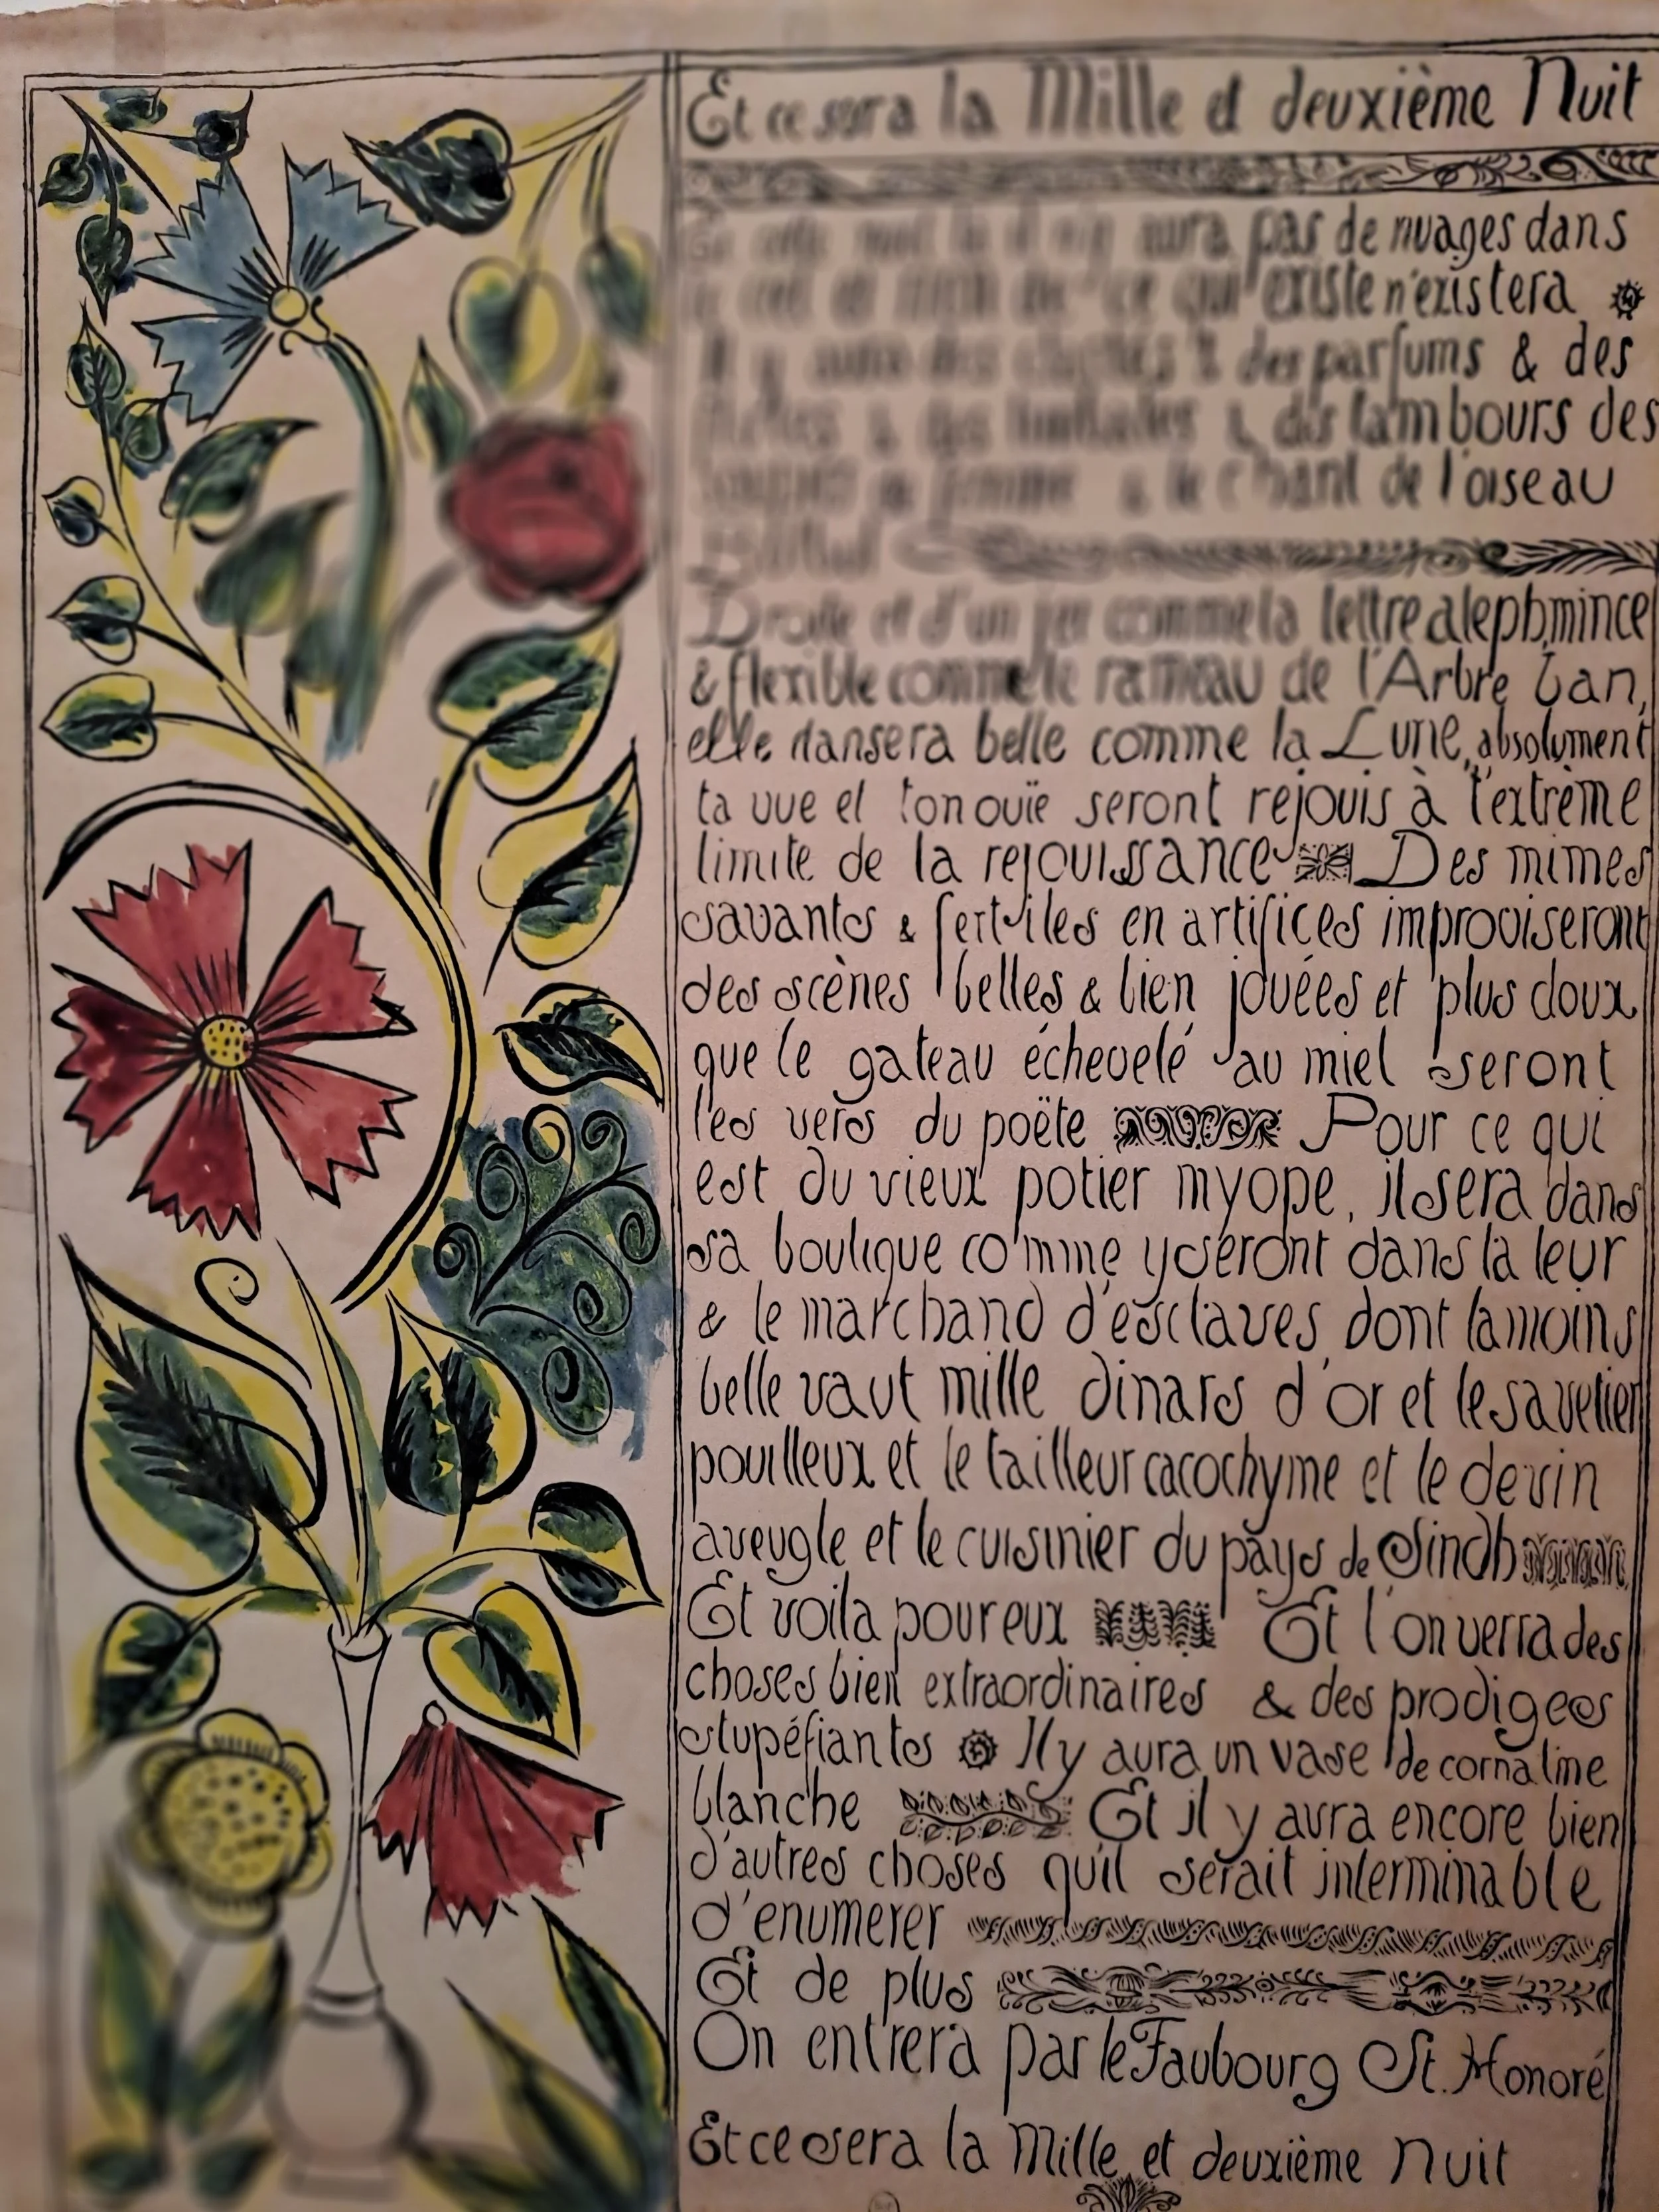 Et ce sera la Mille et deuxième Nuit
aura pas de nuages dans
ce qui existe n'existera
Il y aura des & des parfums & des
& des & des tambours des
& le chant de l'oiseau
Droite et d'un jet comme la lettre aleph, mince
& flexible comme le rameau de l'Arbre Ban,
elle dansera belle comme la Lune, absolument
ta vue et ton ouïe seront rejouis à l'extrème
limite de la rejouissance Des mimes
savants & fertiles en artifices improviseront
des scènes belles & bien jouées et plus doux
que le gateau échevelé au miel seront
les vers du poëte Pour ce qui
est du vieux potier myope, il sera dans
sa boutique comme y seront dans la leur
& le marchand d'esclaves, dont la moins
belle vaut mille dinars d'or et le savetier
pouilleux et le tailleur cacochyme et le devin
aveugle et le cuisinier du pays de Sindh
Et voila pour eux Et l'on verra des
choses bien extraordinaires & des prodiges
stupéfiants Il y aura un vase de cornaline
blanche Et il y aura encore bien
d'autres choses qu'il serait interminable
d'enumerer
Et de plus
On entrera par le Faubourg St. Honoré
Et ce sera la Mille et deuxième Nuit